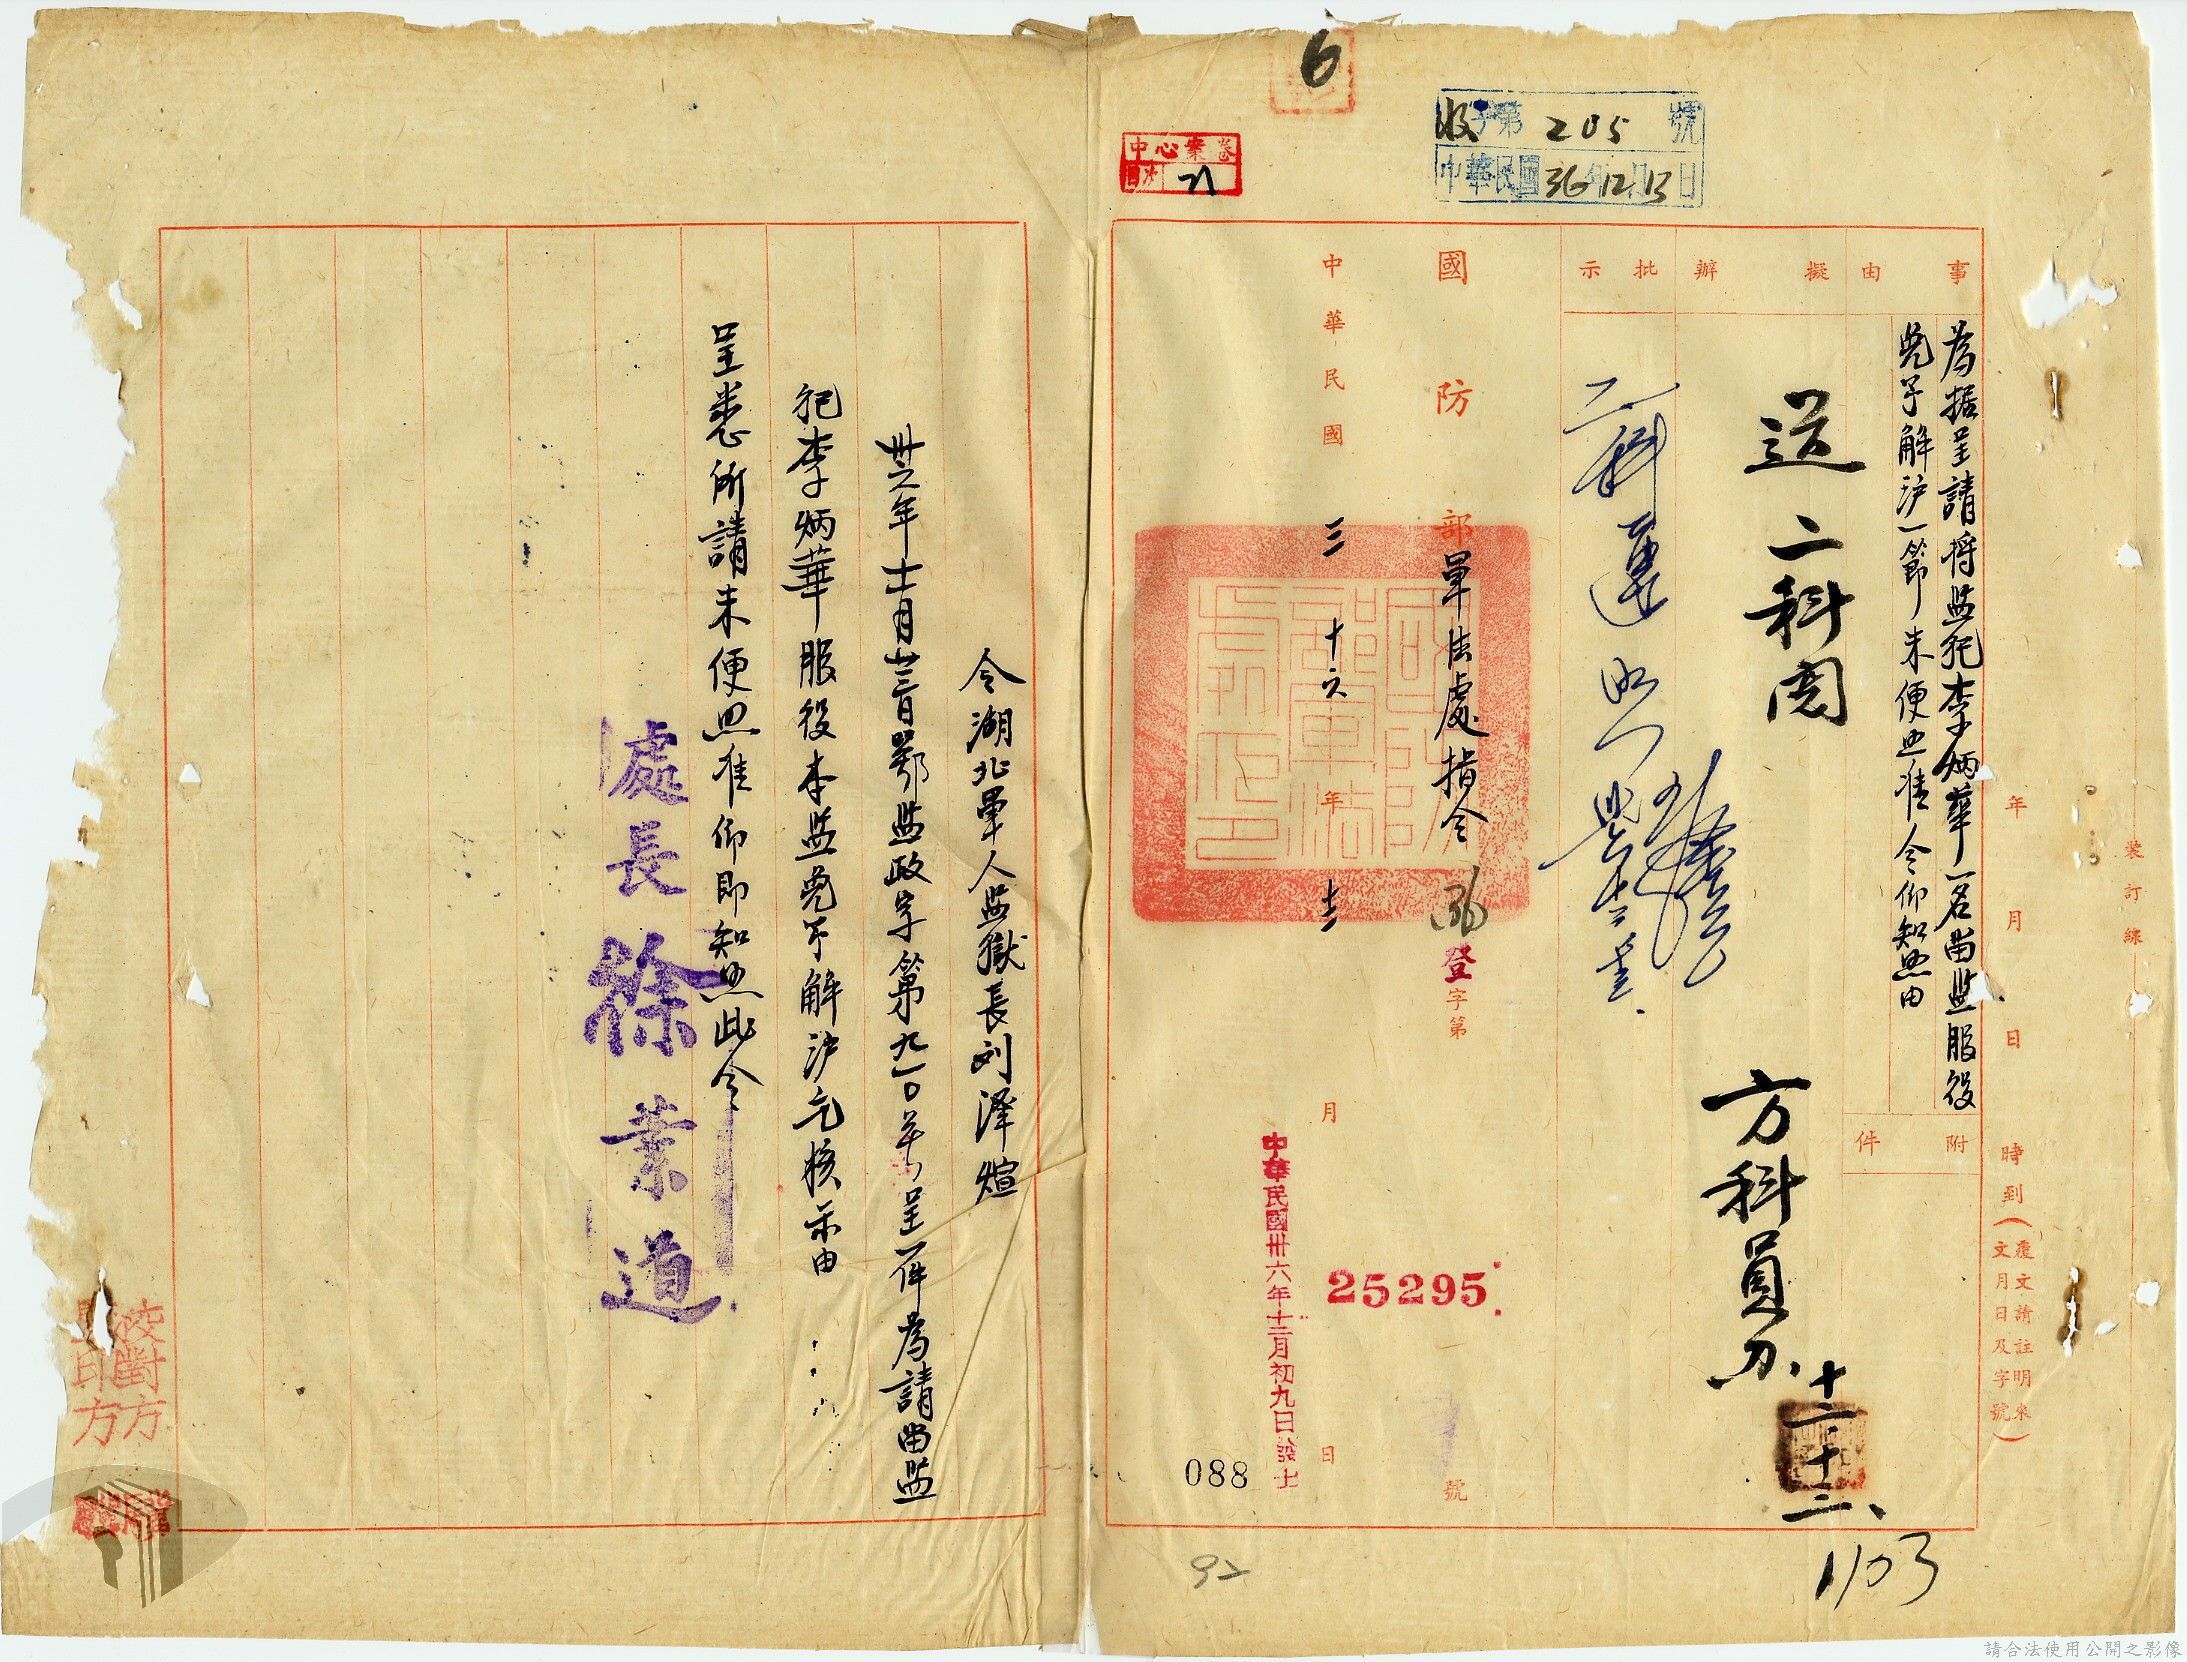 6
收字第205號
中華民國36年12月13日
中心案卷
目次 21
裝訂線
年月日時到（覆文請註明來文月日及字號）
事由
為据呈請將監犯李炳華一名留監服役
免予解沪一節未便照准令仰知照由
附件
擬辦
送二科閱
方科員 十二、十三、
批示
國防部軍法處指令
36登字第25295號
中華民國三十六年十二月日
中華民國卅六年十二月初九日發
088
92
1103
令湖北軍人監獄長刘澤煊
卅六年十一月廿三日鄂監政字第九一〇號呈一件為請留監
犯李炳華服役本監免予解沪乞核示由
呈悉所請未便照准仰即知照此令
處長徐業道
校對方
監印方
請合法使用公開之影像